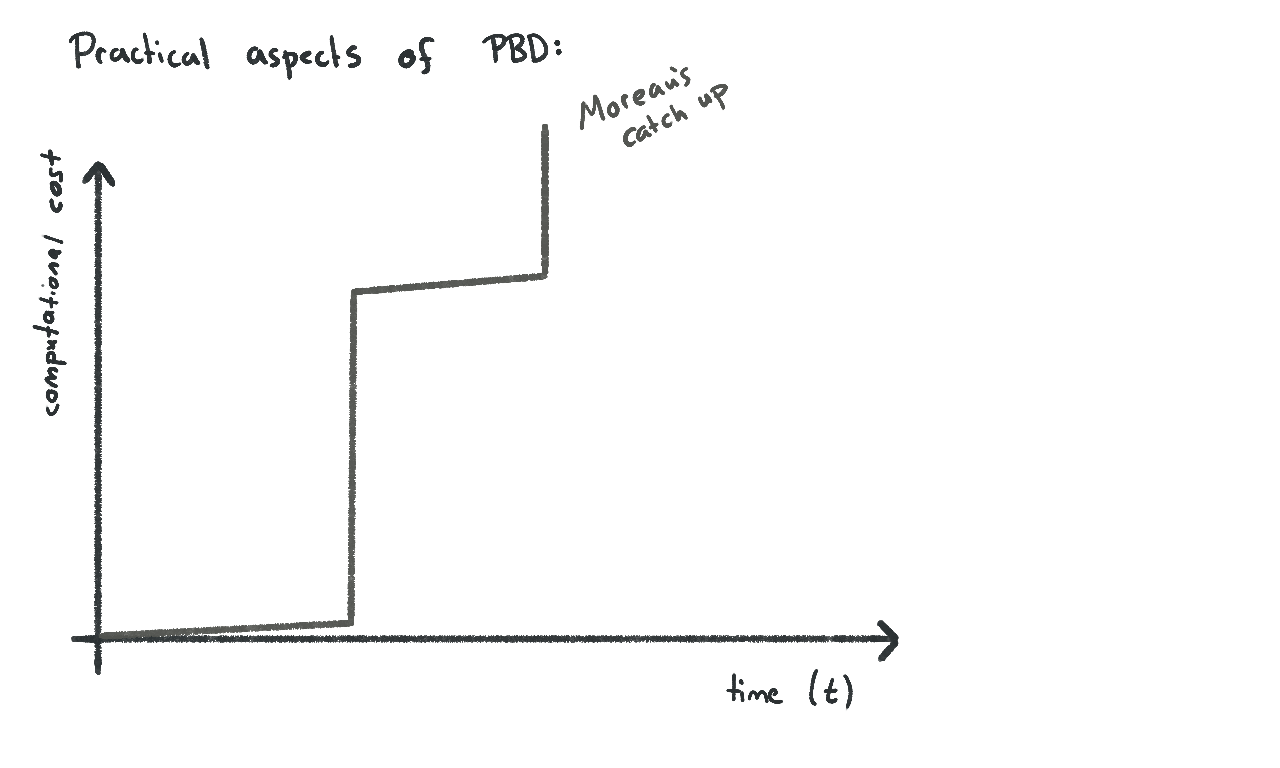 Practical aspects of PBD:
Moreau's
catch up
computational cost
time (t)